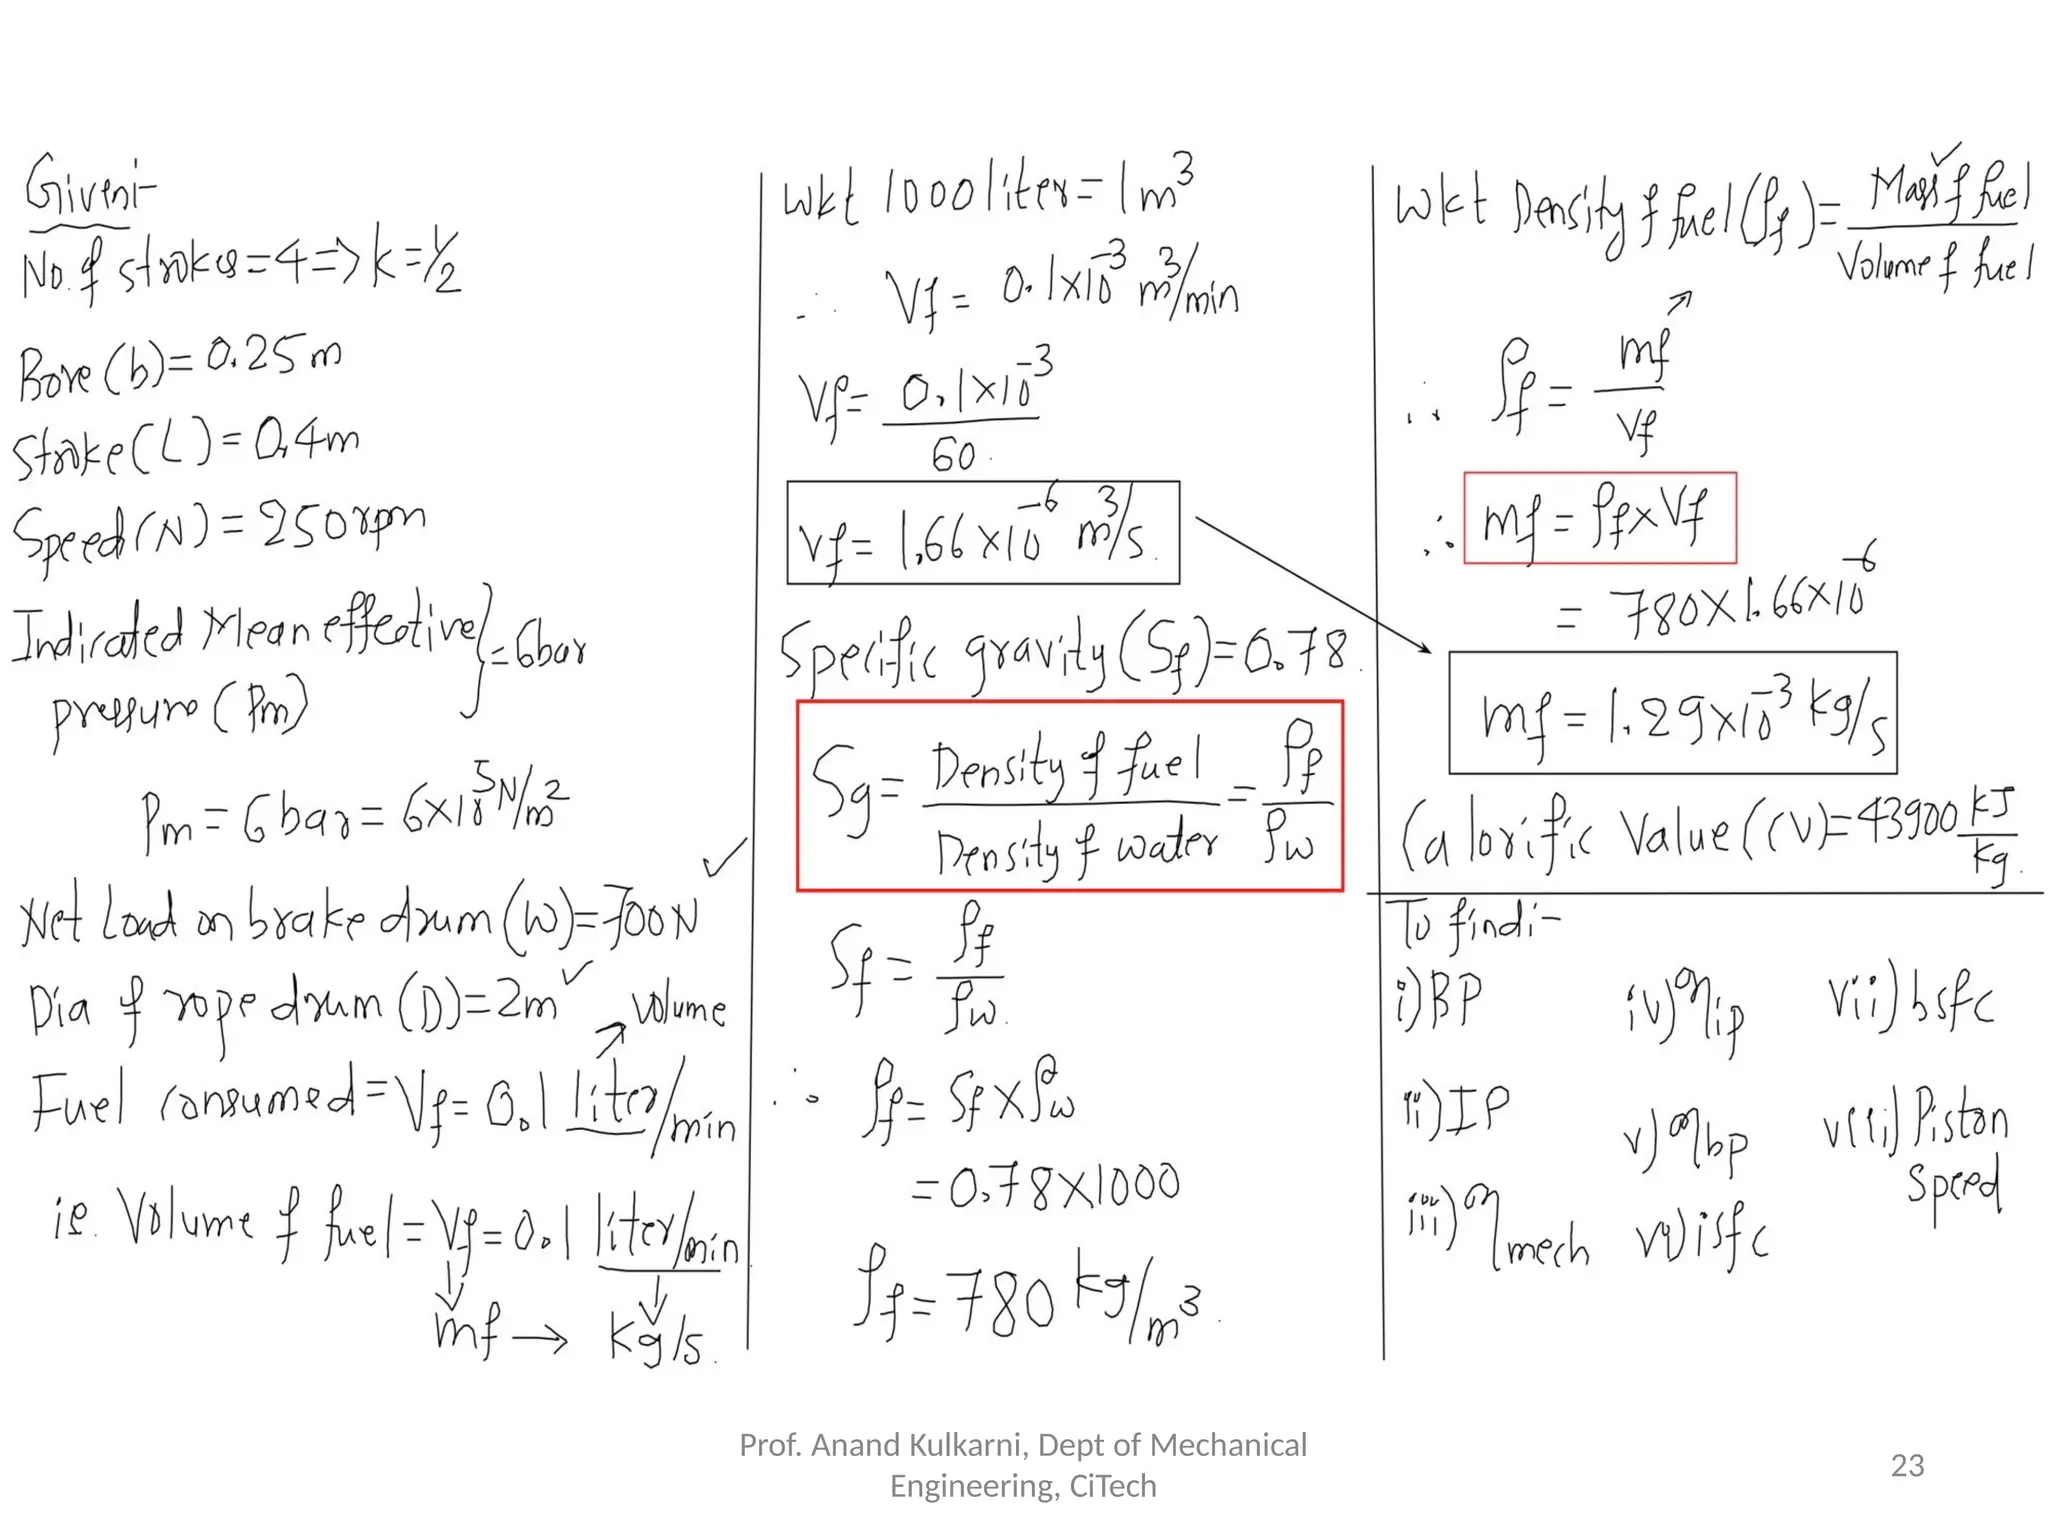 Given:-
No. of strokes = 4 => k = 1/2
Bore (b) = 0.25 m
Stroke (L) = 0.4m
Speed (N) = 250 rpm
Indicated Mean effective
pressure (Pm) } = 6bar
Pm = 6 bar = 6×10⁵ N/m²
Net Load on brake drum (W) = 700 N ✓
Dia of rope drum (D) = 2m ✓
volume
Fuel consumed = Vf = 0.1 liter/min
ie. Volume of fuel = Vf = 0.1 liter/min
mf → kg/s.
Wkt 1000 liter = 1 m³
∴ Vf = 0.1×10⁻³ m³/min
Vf = 0.1×10⁻³
60
Vf = 1.66×10⁻⁶ m³/s.
Specific gravity (Sf) = 0.78
Sg = Density of fuel / Density of water = ρf / ρw
Sf = ρf / ρw
∴ ρf = Sf × ρw
= 0.78×1000
ρf = 780 kg/m³
Wkt Density of fuel (ρf) = Mass of fuel / Volume of fuel
∴ ρf = mf / Vf
∴ mf = ρf × Vf
= 780×1.66×10⁻⁶
mf = 1.29×10⁻³ kg/s
Calorific Value (CV) = 43900 kJ/kg.
To find:-
i) BP iv) ηip vii) bsfc
ii) IP v) ηbp viii) Piston
Speed
iii) ηmech vi) isfc
Prof. Anand Kulkarni, Dept of Mechanical
Engineering, CiTech
23